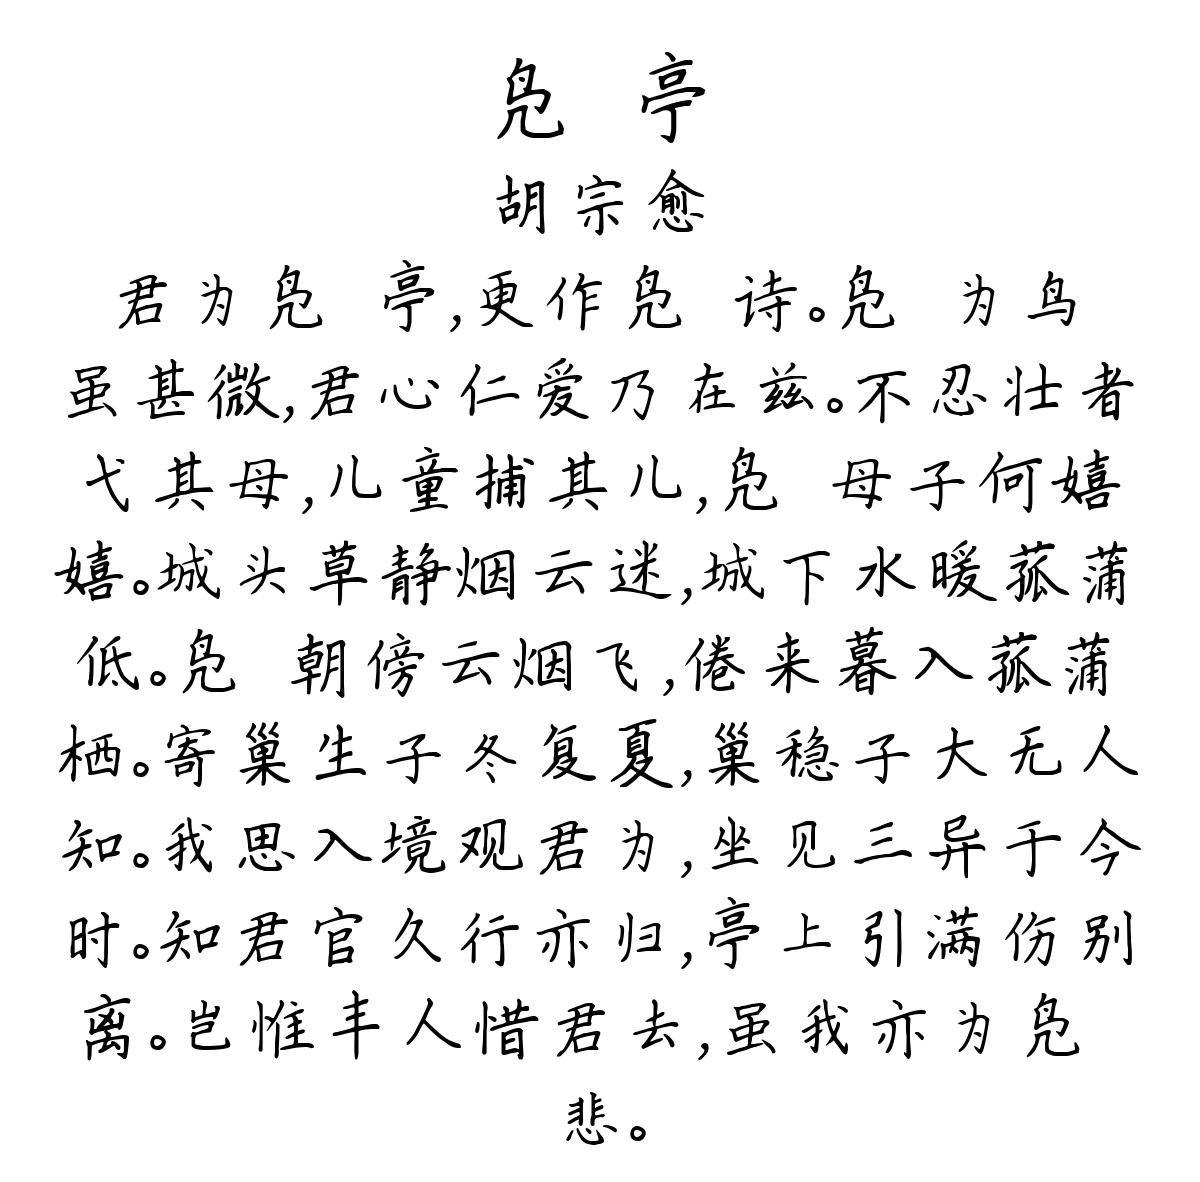 凫 亭
胡宗愈
君为凫 亭,更作凫 诗。凫 为鸟
虽甚微,君心仁爱乃在兹。不忍壮者
弋其母,儿童捕其儿,凫 母子何嬉
嬉。城头草静烟云迷,城下水暖菰蒲
低。凫 朝傍云烟飞,倦来暮入菰蒲
栖。寄巢生子冬复夏,巢稳子大无人
知。我思入境观君为,坐见三异于今
时。知君官久行亦归,亭上引满伤别
离。岂惟丰人惜君去,虽我亦为凫
悲。